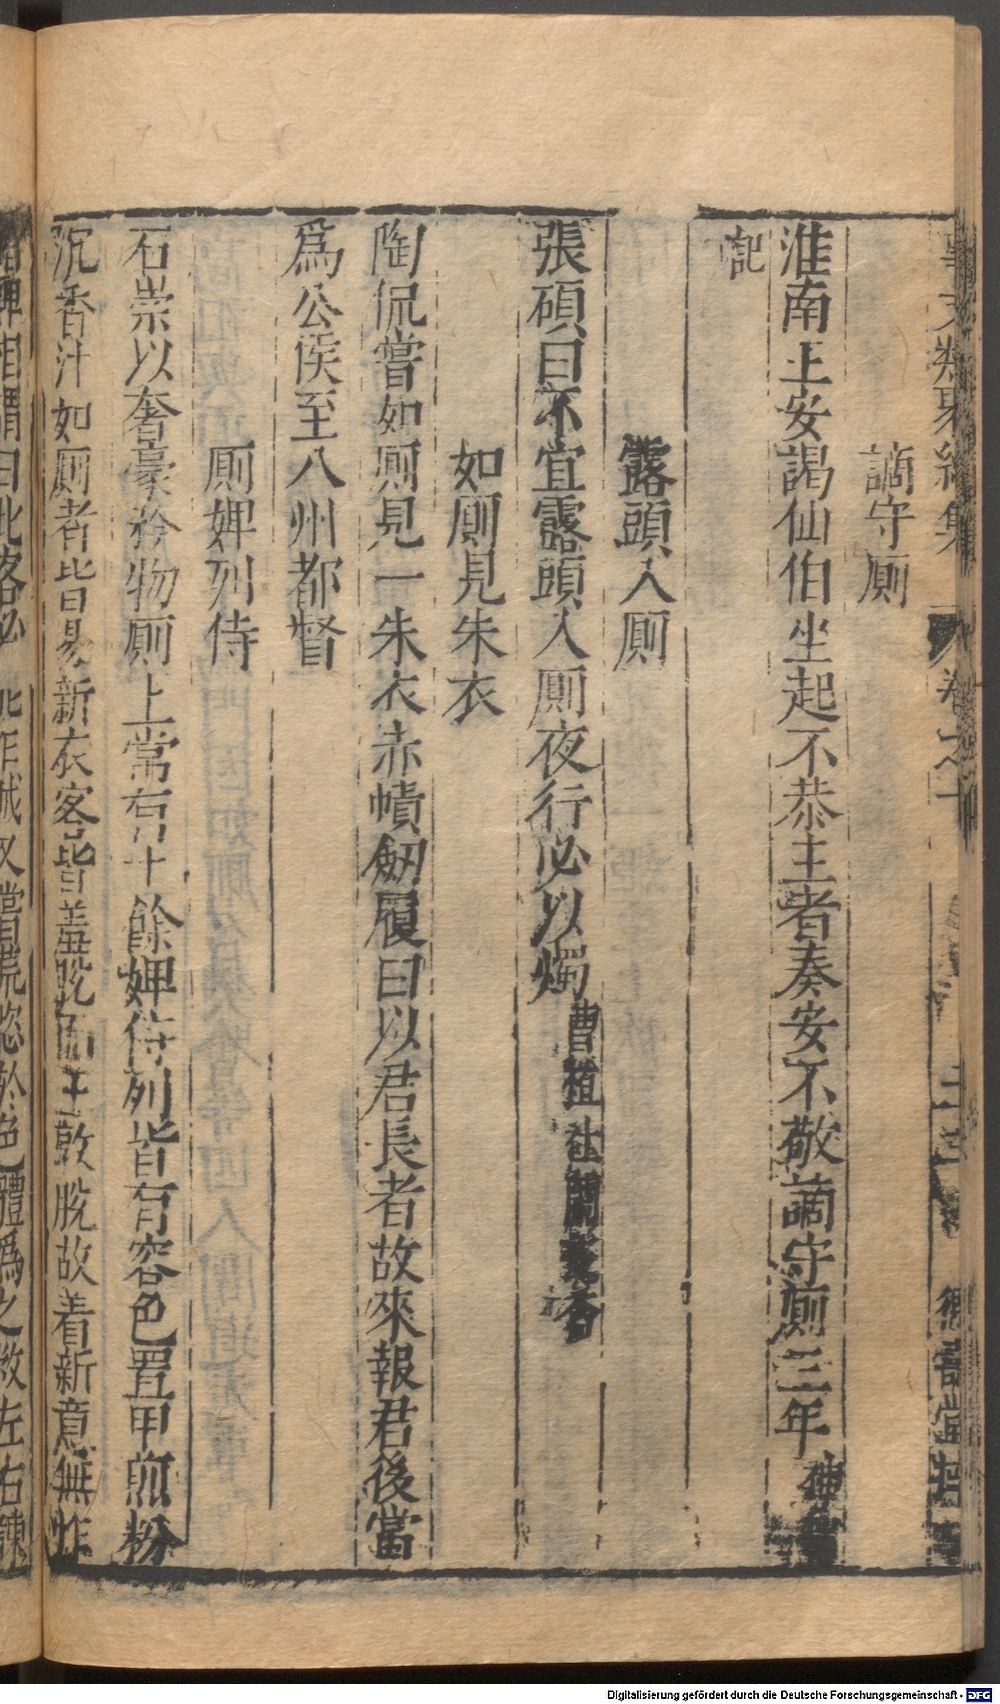 事文類聚續集 卷之十
謫守厠
淮南王安謁仙伯坐起不恭主者奏安不敬謫守厠三年
記
露頭入厠
張碩曰不宜露頭入厠夜行必以燭 曹植杜蘭香
如厠見朱衣
陶侃嘗如厠見一朱衣赤幘劒履曰以君長者故來報君後當
爲公侯至八州都督
厠婢列侍
石崇以奢豪矜物厠上常有十餘婢侍列皆有容色置甲煎粉
沉香汁如厠者皆易新衣客皆羞脫而王敦脫故着新意無怍
婢相謂曰此客必 作賊又嘗荒恣於色體爲之敝左右諫
Digitalisierung gefördert durch die Deutsche Forschungsgemeinschaft - DFG